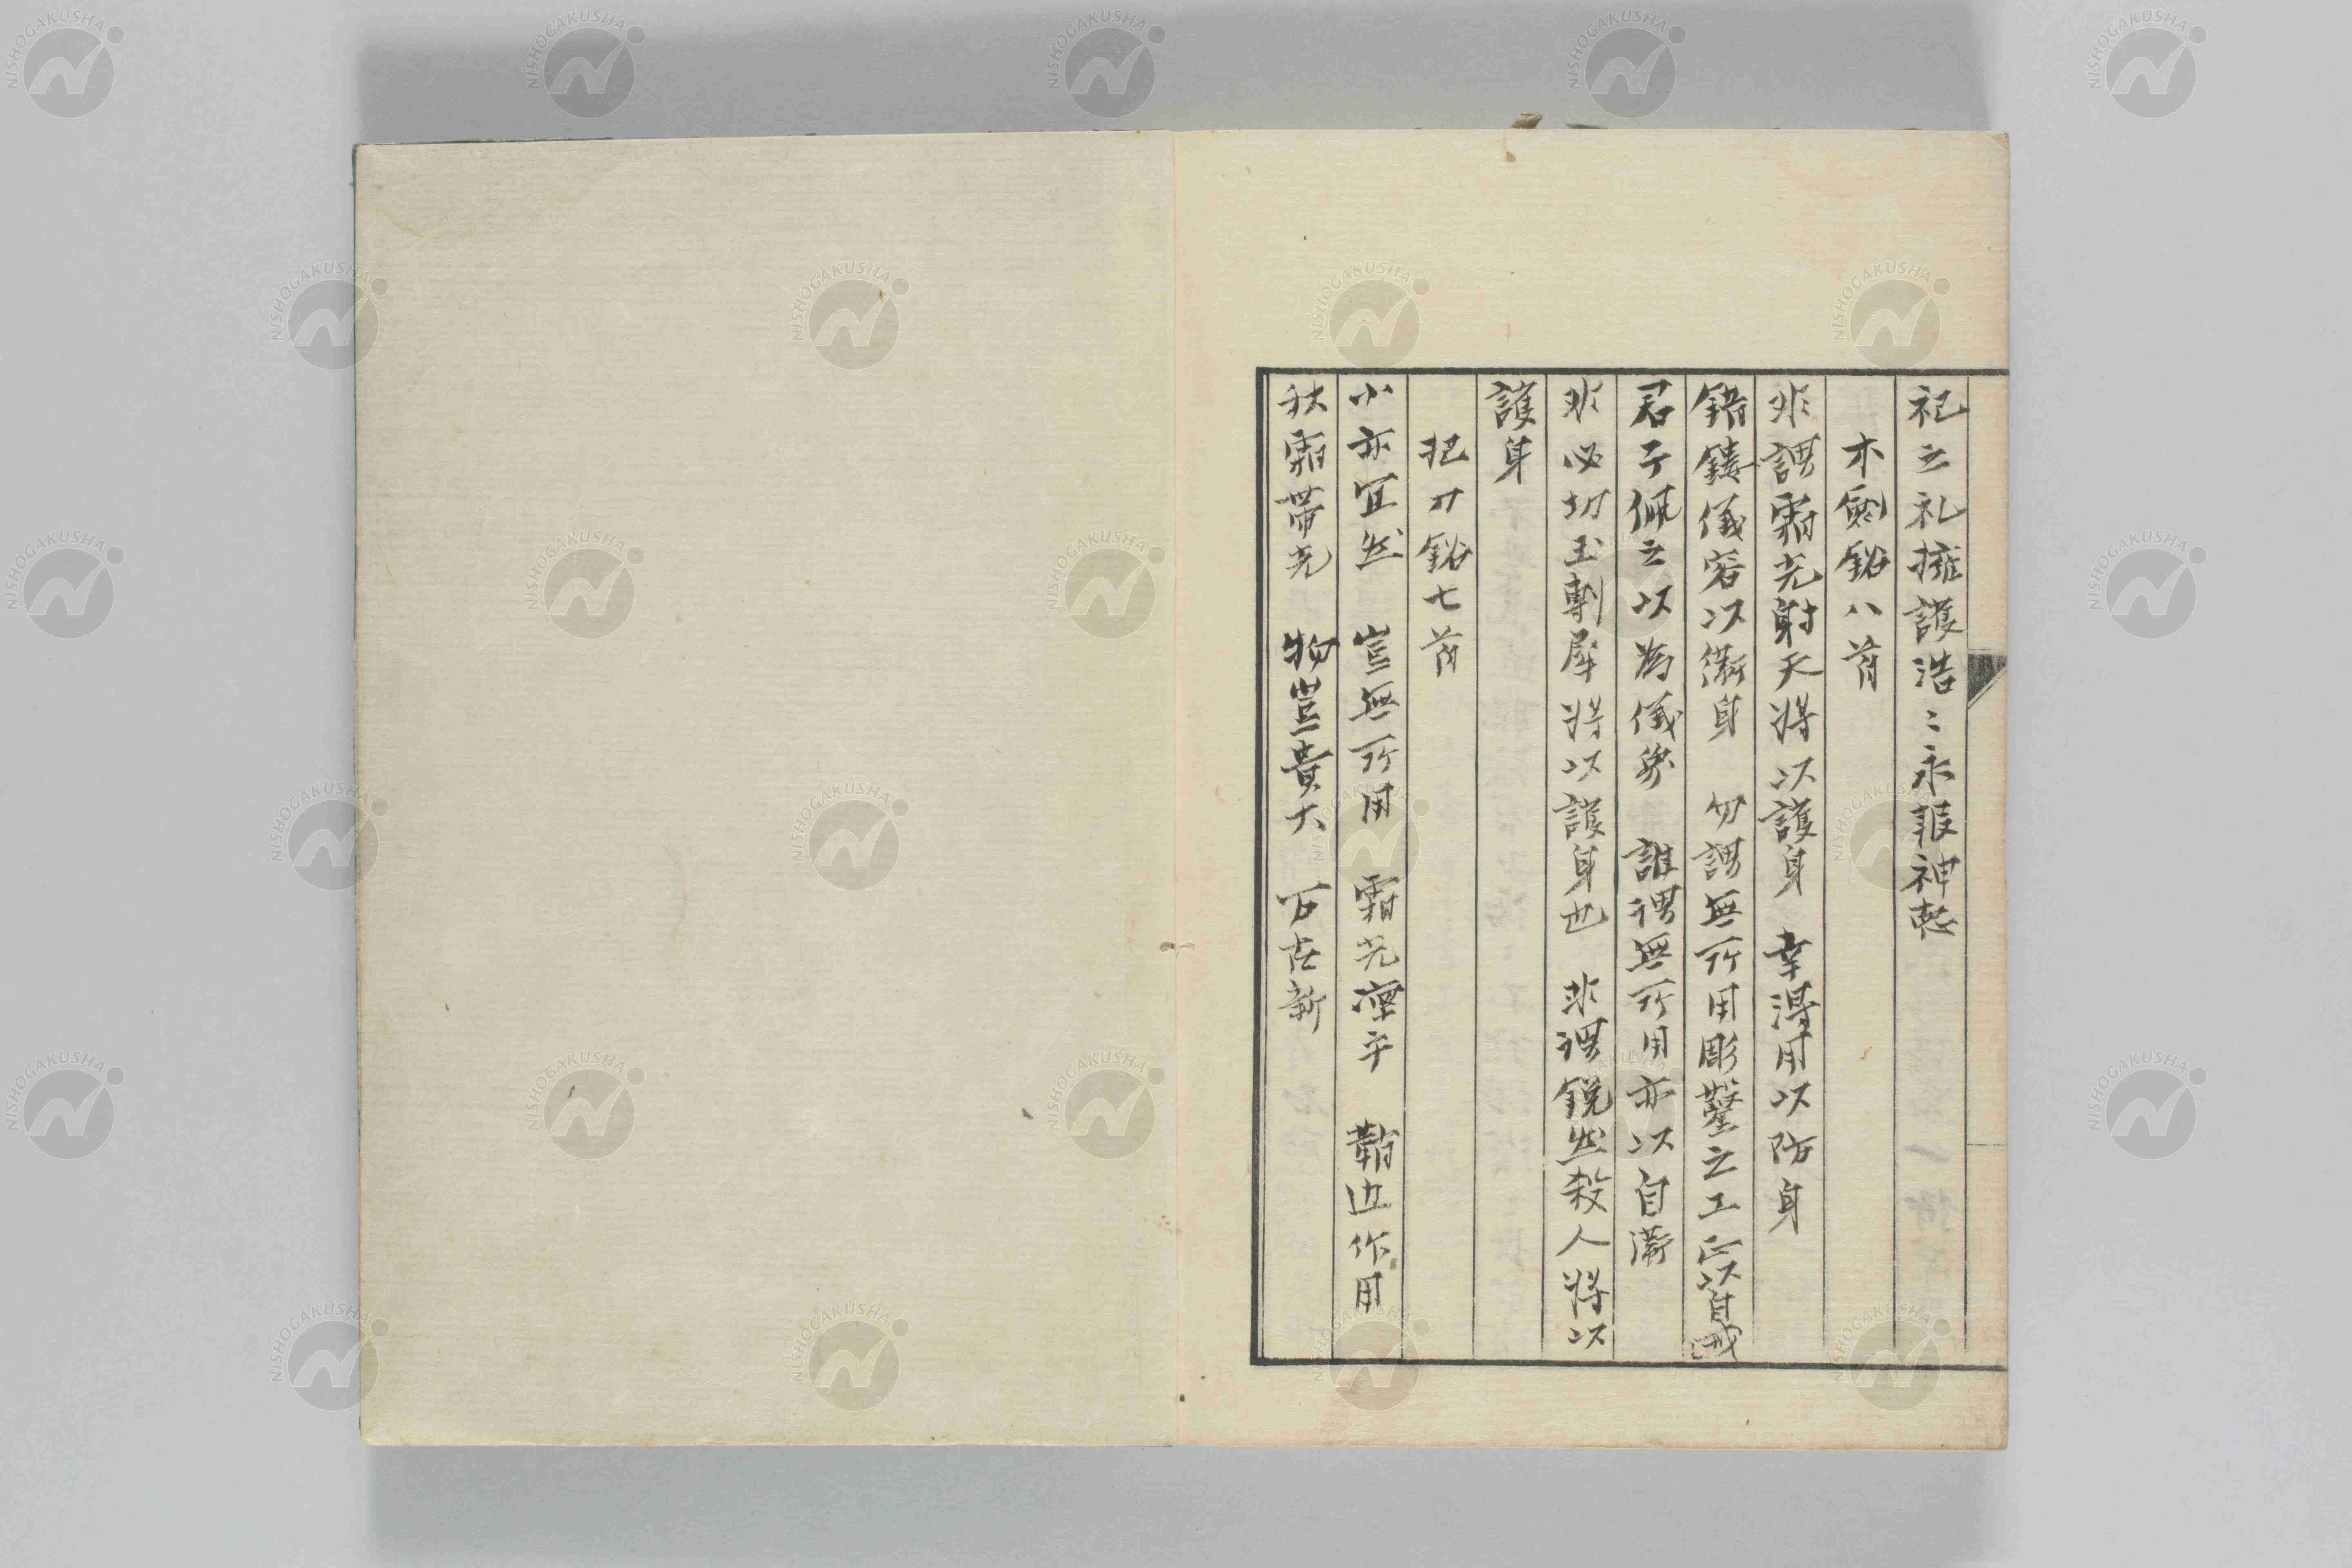 祀之礼擁護浩〻永護神慭
木劔銘八首
非謂霜光射天将以護身　幸得用以防身
錯鏤儀容以衛身　勿謂無所用彫鏨之工㠯以自戒
君子佩之以為儀象　誰謂無所用亦以自衛
非必切玉剸犀将以護身也　非謂鋭然殺人将以
護身
把刀銘七首
小亦宜然　豈無所用　霜芒凛乎　鞘迠作用
秋霜帯光　物豈貴大　百在新
NISHOGAKUSHA